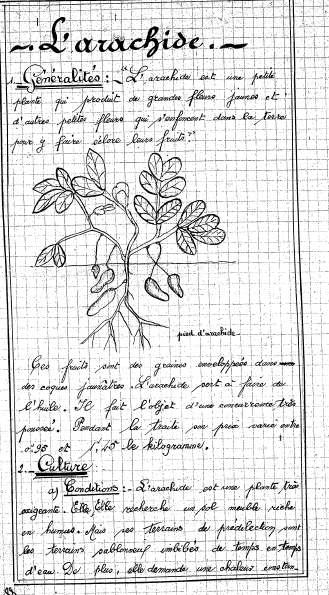 L'arachide.
1. Généralités : - "L'arachide est une petite
plante qui produit de grandes fleurs jaunes et
d'autres petites fleurs qui s'enfoncent dans la terre
pour y faire éclore leurs fruits".
pied d'arachide
Ces fruits sont des graines enveloppées dans
des coques jaunâtres. L'arachide sert à faire de
l'huile. Il fait l'objet d'une concurrence très
poussée. Pendant la traite son prix varie entre
0,95 et 1,45 le kilogramme.
2. Culture
a) Conditions : - L'arachide est une plante très
exigeante. Elle, Elle recherche un sol meuble riche
en humus. Mais ses terrains de prédilection sont
les terrains sablonneux imbibés de temps en temps
d'eau. De plus, elle demande une chaleur constan-